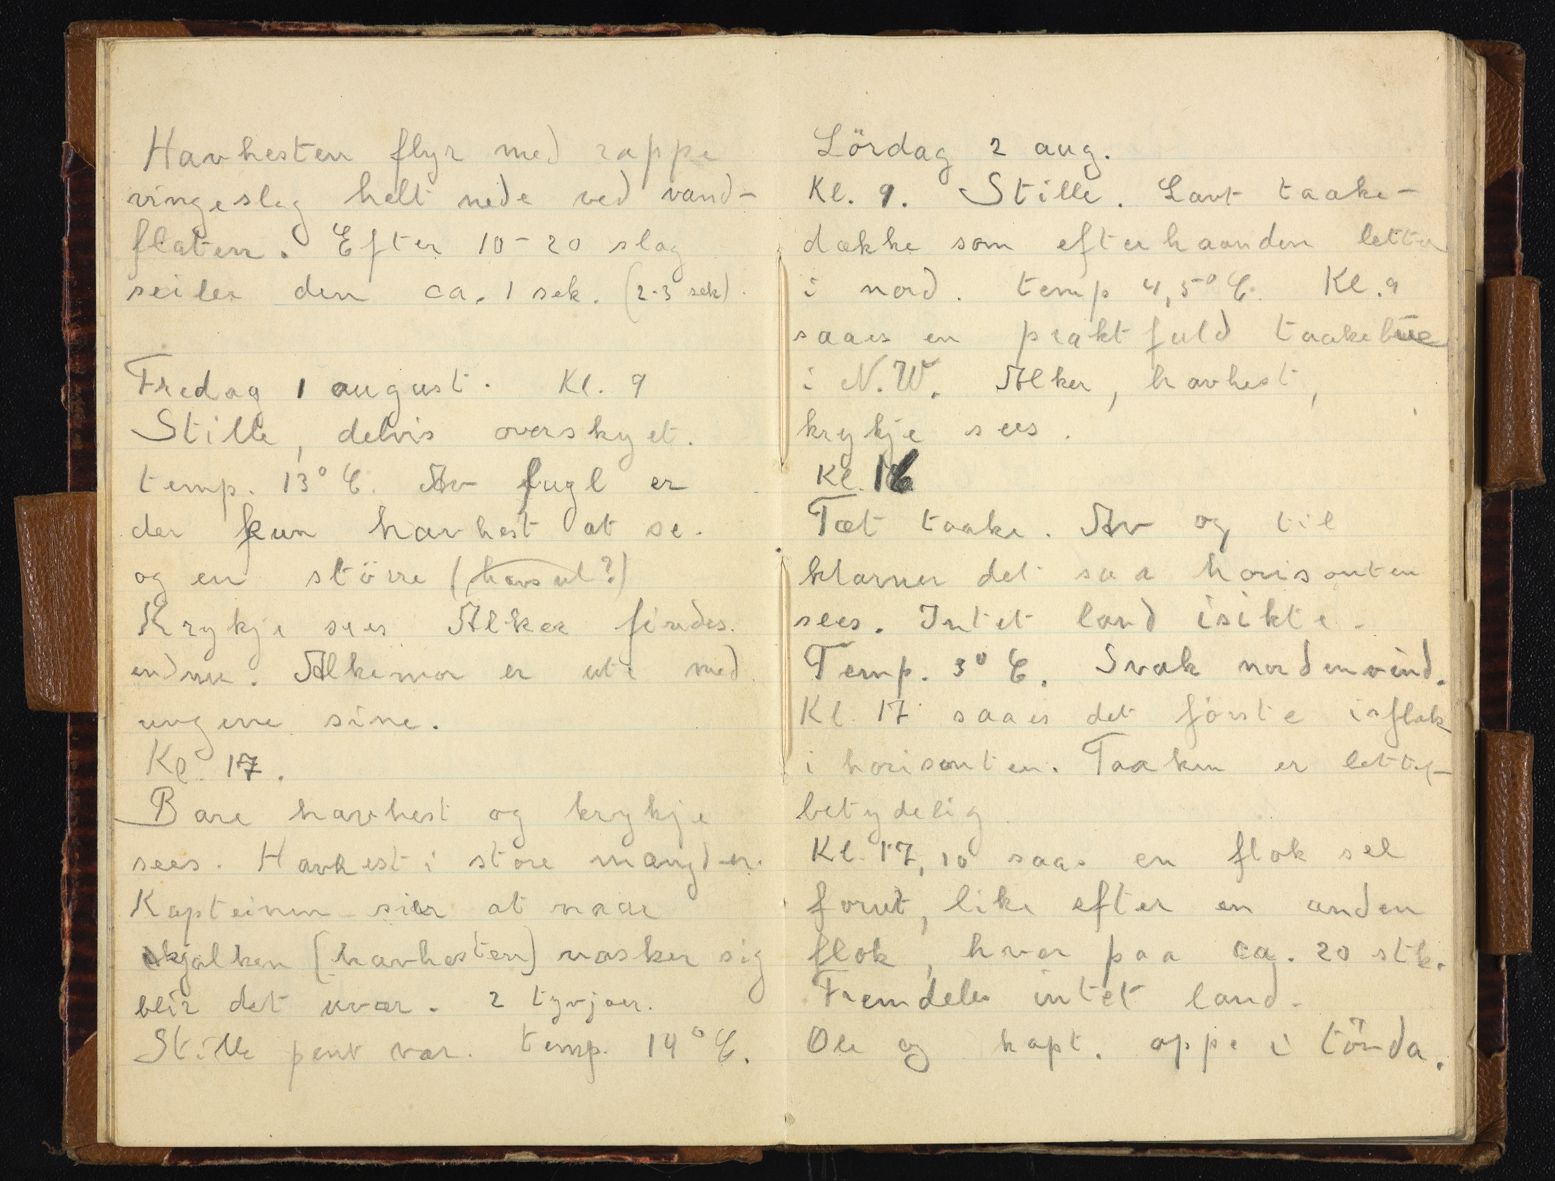 Havhesten flyr med rappe
vingeslag helt nede ved vand-
flaten. Efter 10-20 slag
seiler den ca. 1 sek. (2-3 sek).
Fredag 1 august. Kl. 9
Stille, delvis overskyet.
temp. 13° C. Av fugl er
der kun havhest at se.
og en större (havsul?)
Krykje sees Alker findes
endnu. Alkemor er ute med
ungene sine.
Kl. 17.
Bare havhest og krykje
sees. Havhest i store mængder.
Kapteinen sier at naar
skjælken (havhesten) vasker sig
blir det uvær. 2 tyvjoer.
Stille pent vær. temp. 14° C.
Lördag 2 aug.
Kl. 9. Stille. Lavt taake-
dække som efterhaanden letter
i nord. temp 4,5° C. Kl. 9
saaes en praktfuld taakebue
i N.W. Alker, havhest,
krykje sees.
Kl. 16
Tæt taake. Av og til
klarner det saa horisonten
sees. Intet land isikte.
Temp. 3° C. Svak nordenvind.
Kl. 17 saaes det förste isflak
i horisonten. Taaken er lettet
betydelig
Kl. 17,10 saas en flok sel
forut, like efter en anden
flok, hver paa ca. 20 stk.
Fremdeles intet land.
Ole og kapt. oppe i tönda.